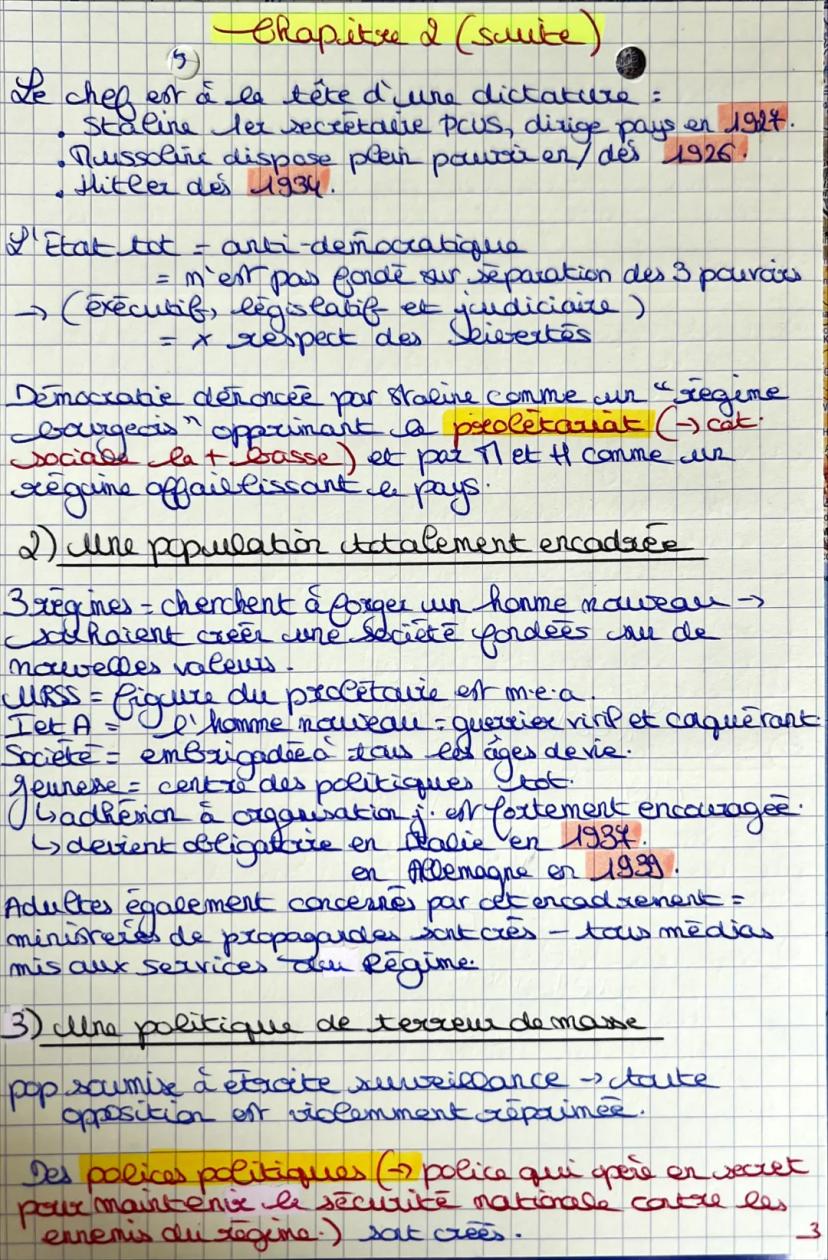 Chapitre 2 (suite)
5
Le chef est à la tête d'une dictature :
. Staline 1er secrétaire PCUS, dirige pays en 1927.
. Mussolini dispose plein pouvoir en/dés 1926.
. Hitler dés 1934.
L'État tot = anti-démocratique
= n'est pas fondé sur séparation des 3 pouvoirs
→ (éxécutif, législatif et judiciaire)
= x respect des libertés
Démocratie dénoncée par Staline comme un "régime
bourgeois" opprimant le prolétariat (→ cat.
sociale la + basse) et par M et H comme un
régime affaiblissant le pays.
2) Une population totalement encadrée
3 régimes = cherchent à forger un homme nouveau →
souhaient créer une société fondées su de
nouvelles valeurs.
URSS = figure du prolétaire est m.e.a.
I et A = l'homme nouveau = guerrier viril et coquérant.
Société = embrigadée à tous les âges de vie.
Jeunesse = centre des politiques tot.
↳ adhésion à organisation j. est fortement encouragée.
↳ devient obligatoire en Italie en 1937.
en Allemagne en 1939.
Adultes également concernés par cet encadrement =
ministères de propagandes sont crés – tous médias
mis aux services du Régime.
3) Une politique de terreur de masse
pop soumise à étroite surveillance → toute
opposition est violemment réprimée.
Des polices politiques (→ police qui opère en secret
pour maintenir la sécurité nationale contre les
ennemis du régime.) sont créés.
3